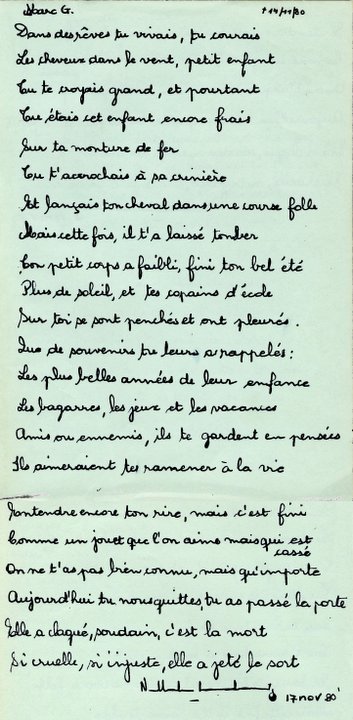 Marc G. † 14/11/80
Dans des rêves tu vivais, tu courais
Les cheveux dans le vent, petit enfant
Tu te croyais grand, et pourtant
Tu étais cet enfant encore frais
Sur ta monture de fer
Tu t'accrochais à sa crinière
Et lançais ton cheval dans une course folle
Mais cette fois, il t'a laissé tomber
Ton petit corps a faibli, fini ton bel été
Plus de soleil, et tes copains d'école
Sur toi se sont penchés et ont pleurés.
Que de souvenirs tu leurs a rappelés:
Les plus belles années de leur enfance
Les bagarres, les jeux et les vacances
Amis ou ennemis, ils te gardent en pensées
Ils aimeraient tes ramener à la vie
Entendre encore ton rire, mais c'est fini
Comme un jouet que l'on aime mais qui est
cassé
On ne t'as pas bien connu, mais qu'importe
Aujourd'hui tu nous quittes, tu as passé la porte
Elle a claqué, soudain, c'est la mort
Si cruelle, si injuste, elle a jeté le sort
17 nov 80'